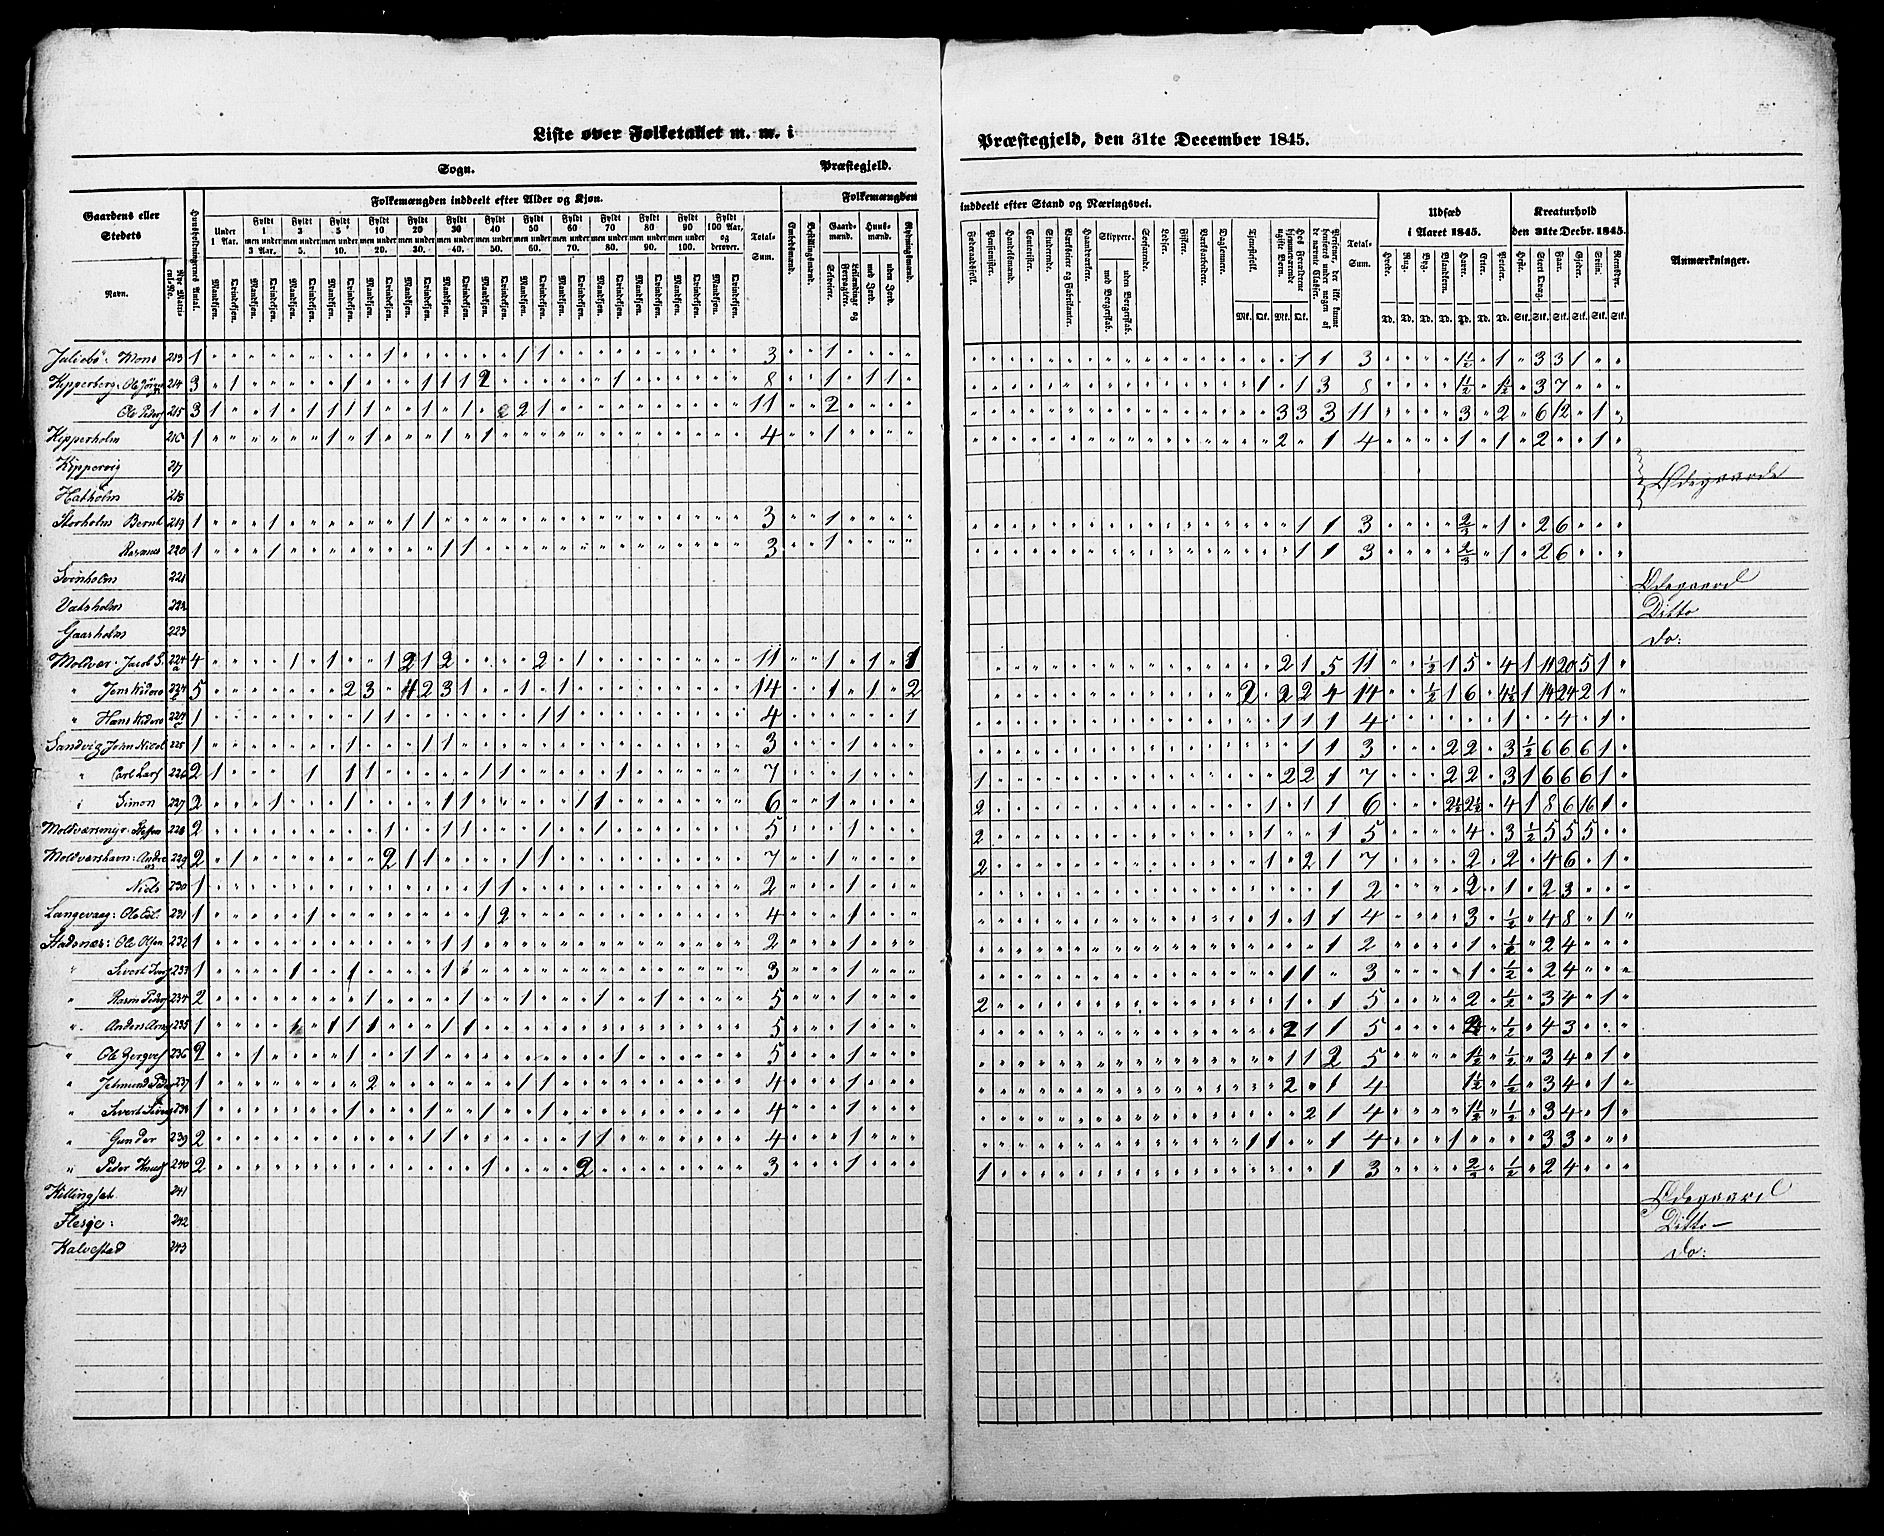 Liste over Folketallet m. m. i
Præstegjeld, den 31te December 1845.
Sogn. Præstegjeld.
Gaardens eller Stedets
Navn.
Nye Matrikul-No.
Huusholdningernes Antal.
Folkemængden inddeelt efter Alder og Kjøn.
Folkemængden
inddeelt efter Stand og Næringsvei.
Udsæd i Aaret 1845.
Kreaturhold den 31te Decbr. 1845.
Anmærkninger.
Under 1 Aar.
Fyldt 1 men under 3 Aar.
Fyldt 3 men under 5.
Fyldt 5 men under 10.
Fyldt 10 men under 20.
Fyldt 20 men under 30.
Fyldt 30 men under 40.
Fyldt 40 men under 50.
Fyldt 50 men under 60.
Fyldt 60 men under 70.
Fyldt 70 men under 80.
Fyldt 80 men under 90.
Fyldt 90 men under 100.
100 Aar, og derover.
Mandkjøn. Qvindekjøn.
Total-Sum.
Embedsmænd.
Bestillingsmænd.
Gaardmænd.
Selveiere.
Leilændinge og Forpagtere.
Huusmænd.
med Jord.
uden Jord.
Rydningsmænd.
Føderaadsfolk.
Pensionister.
Handelsmænd.
Contorister.
Studerende.
Værkeiere og Fabrikanter.
Haandværkere.
Skippere.
med Borgerskab.
uden Borgerskab.
Søefarende.
Lodser.
Fiskere.
Værksarbeidere.
Daglønnere.
Tjenestefolk.
Hos Forældrene hjemmeværende ugifte Børn.
Personer, der ikke kunne henføres under nogen af de nævnte Classer.
Total-Sum.
Mk. Qk. Mk. Qk.
Hvede. Rug. Byg. Blandkorn. Havre. Erter. Poteter.
Td. Td. Td. Td. Td. Td. Td.
Heste. Stort Qvæg. Faar. Gjeder. Sviin. Rensdyr.
Stk. Stk. Stk. Stk. Stk. Stk.
Juliebö: Mons 213 1 1 1 1 3 1 1 1 3 1½ 1 3 3 1
Kipperberg: Ole 214 3 1 1 1 1 1 2 1 8 1 1 1 1 1 3 8 1½ 1½ 3 7
Ole Peders 215 3 1 1 1 1 1 1 1 2 2 1 11 2 3 3 3 11 3 2 6 12 1
Kipperholm 216 1 1 1 1 1 4 1 2 1 4 1 1 2 1
Kippervig 217
Hatholm 218 Ødegaarde
Storholm Bernt 219 1 1 1 1 3 1 1 1 3 ⅔ 1 2 6
Rasmus 220 1 1 1 1 3 1 1 1 3 ⅔ 1 2 6
Svinholm 221 Ødegaard
Vatsholm 222 Ditto
Gaasholm 223 do:
Moldvær: Jacob 224a 4 1 1 1 2 1 2 2 1 11 1 1 1 2 1 5 11 ½ 1 5 4 1 11 20 5 1
" Jens 224b 5 2 3 2 3 1 1 1 14 1 1 2 2 2 2 4 14 ½ 1 6 4½ 1 14 24 2 1
" Hans 224c 1 1 1 1 1 4 1 1 1 1 4 1 4 1
Sandvig John 225 1 1 1 1 3 1 1 1 3 2 2 3 ½ 6 6 6 1
" Carl Lars 226 2 1 1 1 1 1 1 1 7 1 1 2 2 1 7 2 2 3 1 6 6 6 1
" Simon 227 2 1 1 1 1 1 1 6 1 2 1 1 1 6 2½ 2½ 4 1 8 6 16 1
Moldværsmyr: 228 2 1 1 1 1 1 5 1 2 1 1 5 4 3 ½ 5 5 5
Moldværshavn: Andreas 229 2 1 2 1 1 1 1 7 1 2 1 2 1 7 2 2 4 6 1
Niels 230 1 1 1 2 1 1 2 2 1 2 3
Langevaag: Ole 231 1 1 1 2 4 1 1 1 1 4 3 ½ 4 8 1
Stadsnæs: Ole Olsen 232 1 1 1 2 1 1 2 1 ½ 2 4
" Sivert 233 1 1 1 1 3 1 1 1 3 1 ½ 2 4
" Rasm Peders 234 2 1 1 1 1 1 5 1 2 1 1 5 2 ½ 3 4 1
" Anders 235 1 1 1 1 1 1 5 1 2 1 1 5 ½ 4 3
" Ole 236 2 1 1 1 1 1 5 1 1 1 2 5 1½ ½ 3 4 1
" Peder 237 1 2 1 1 4 1 2 1 4 1½ ½ 3 4 1
" Sivert 238 1 1 1 1 1 4 1 2 1 4 1½ ½ 3 4 1
" Gunder 239 2 1 1 1 1 4 1 1 1 1 4 1 3 3
" Peder Knuds 240 2 1 2 3 1 1 1 3 ⅔ ½ 2 4
241 Ødegaard
Flesje: 242 Ditto —
Kalvestad 243 do: